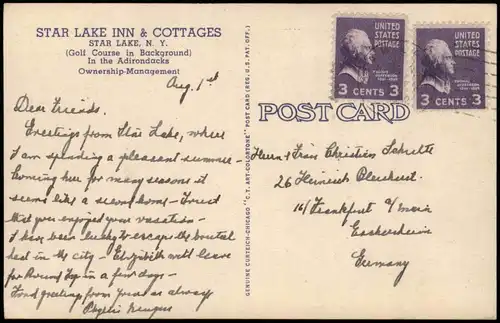 STAR LAKE INN & COTTAGES
STAR LAKE, N. Y.
(Golf Course in Background)
In the Adirondacks
Ownership-Management
Aug. 1st
Dear Friends.
Greetings from Star Lake, where
I am spending a pleasant summer—
Coming here for many seasons it
seems like a second home— Trust
that you enjoyed your vacation—
I have been lucky to escape the brutal
heat in the city— Elizabeth will leave
for Round Top in a few days—
Fond greetings from your as always
GENUINE CURTEICH-CHICAGO "C.T. ART-COLORTONE" POST CARD (REG. U.S. PAT. OFF.)
UNITED STATES POSTAGE
3 CENTS 3
UNITED STATES POSTAGE
3 CENTS 3
POST CARD
Herrn & Frau Christian Schutte
26 Heinrich
16/ Frankfurt a/main
Eschersheim
Germany